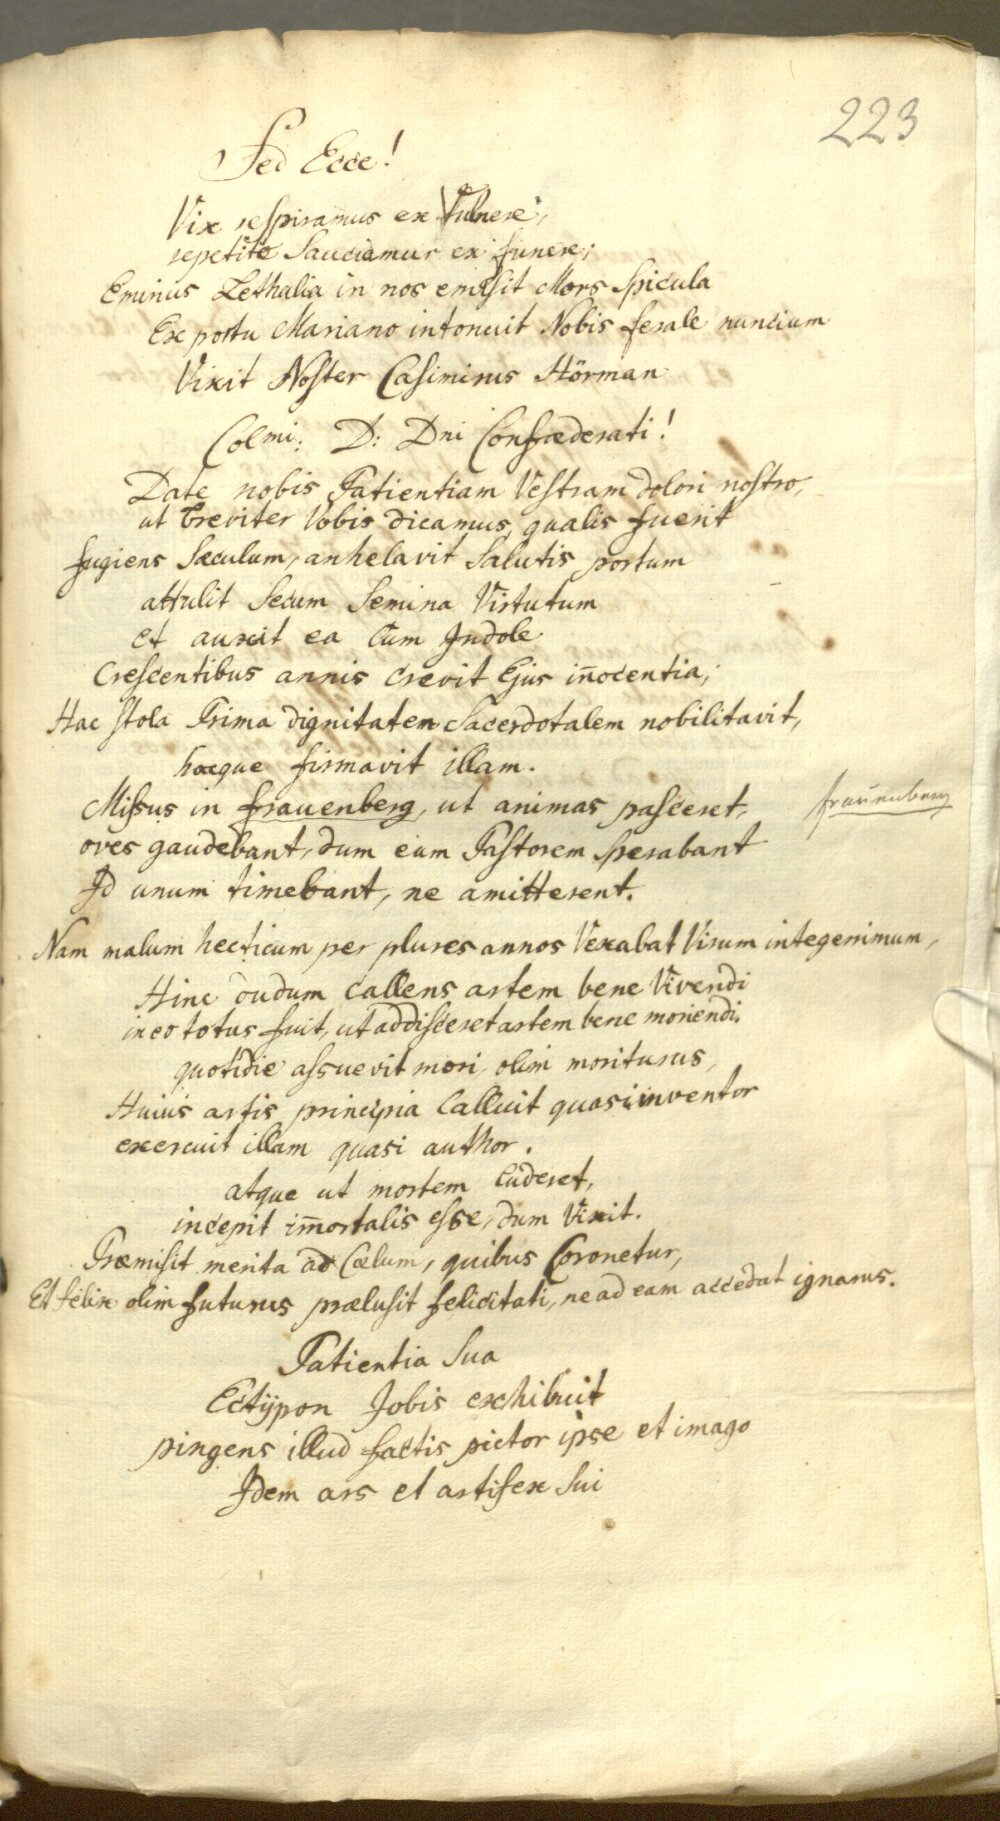 223
Sed Ecce!
Vix respiramus ex Vulnere,
repetito Sauciamur ex funere;
Eminus Lethalia in nos emisit Mors Spicula
Ex portu Mariano intonuit Nobis ferale nuncium
Vixit Noster Casimirus Hörman
Colmi: D: Dni Confœderati!
Date nobis Patientiam Vestram dolori nostro,
ut breviter Vobis dicamus, qualis fuerit
fugiens Sæculum, anhelavit Salutis portum
attulit Secum Semina Virtutum
et auxit ea Cum Indole
Crescentibus annis crevit Ejus iñocentia,
Hac Stola Prima dignitatem Sacerdotalem nobilitavit,
hacque firmavit illam.
Missus in frauenberg, ut animas pasceret,
frauenberg
oves gaudebant, dum eum Pastorem Sperabant
Id unum timebant, ne amitterent.
Nam malum hecticum per plures annos Vexabat Virum integerrimum,
Hinc dudum callens artem bene Vivendi
in eo totus fuit, ut addisceret artem bene moriendi.
quotidie assuevit mori, olim moriturus,
Huius artis principia Calluit quasi inventor
exercuit illam quasi author.
atque ut mortem luderet,
incepit im̃ortalis esse, dum Vixit.
Præmisit merita ad Cælum, quibus Coronetur,
Et felix olim futurus prælusit felicitati, ne ad eam accedat ignarus.
Patientia Sua
Ectÿpon Jobis exhibuit
pingens illud factis pictor ipse et imago
Idem ars et artifex Sui